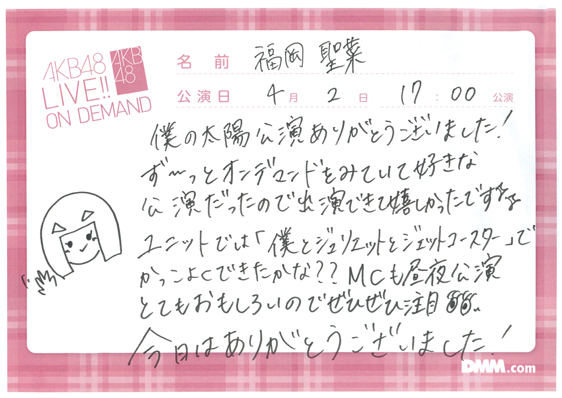 AKB48
LIVE!!
ON DEMAND
AKB
48
名前 福岡 聖菜
公演日 4月 2日 17:00 公演
僕の太陽公演ありがとうございました!
ず〜っとオンデマンドをみていて好きな
公演だったので出演できて嬉しかったです
ユニットでは「僕とジュリエットとジェットコースター」で
かっこよくできたかな?? MCも昼夜公演
とてもおもしろいのでぜひぜひ注目
今日はありがとうございました!
DMM.com